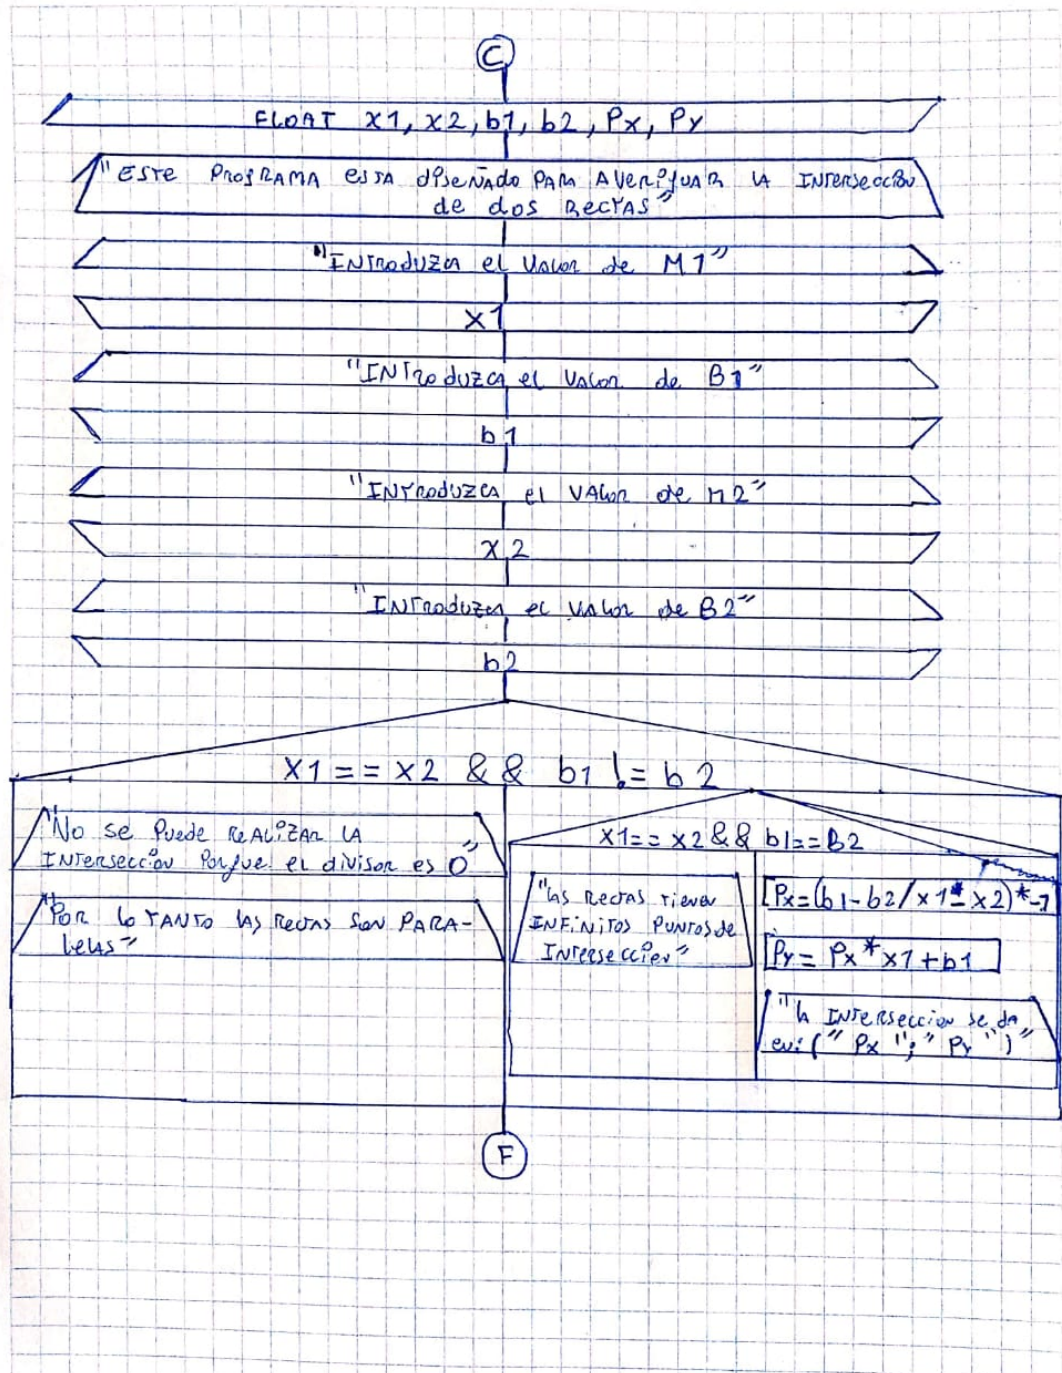 C
FLOAT x1, x2, b1, b2, Px, Py
"ESTE PROGRAMA ESTA diSEÑAdo PARA AVERiguAR LA INTERSECCIÓN
de dos RECTAS"
"INTRODUZCA el VALOR de M1"
x1
"INTRODUZCA el VALOR de B1"
b1
"INTRODUZCA el VALOR de M2"
x2
"INTRODUZCA el VALOR de B2"
b2
X1 == X2 && b1 != b2
"No se Puede REALiZAR LA
INTERSECCIÓN Porque el divisor es 0"
"POR lo TANTO LAS RECTAS SON PARA-
LELAS"
X1 == X2 && b1 == B2
"LAS RECTAS TIENEN
INFiNiTOS PUNTOS de
INTERSECCIÓN"
Px=(b1-b2/x1-x2)*-1
Py= Px*x1+b1
"LA INTERSECCION se da
en: (" Px ";" Py ")"
F